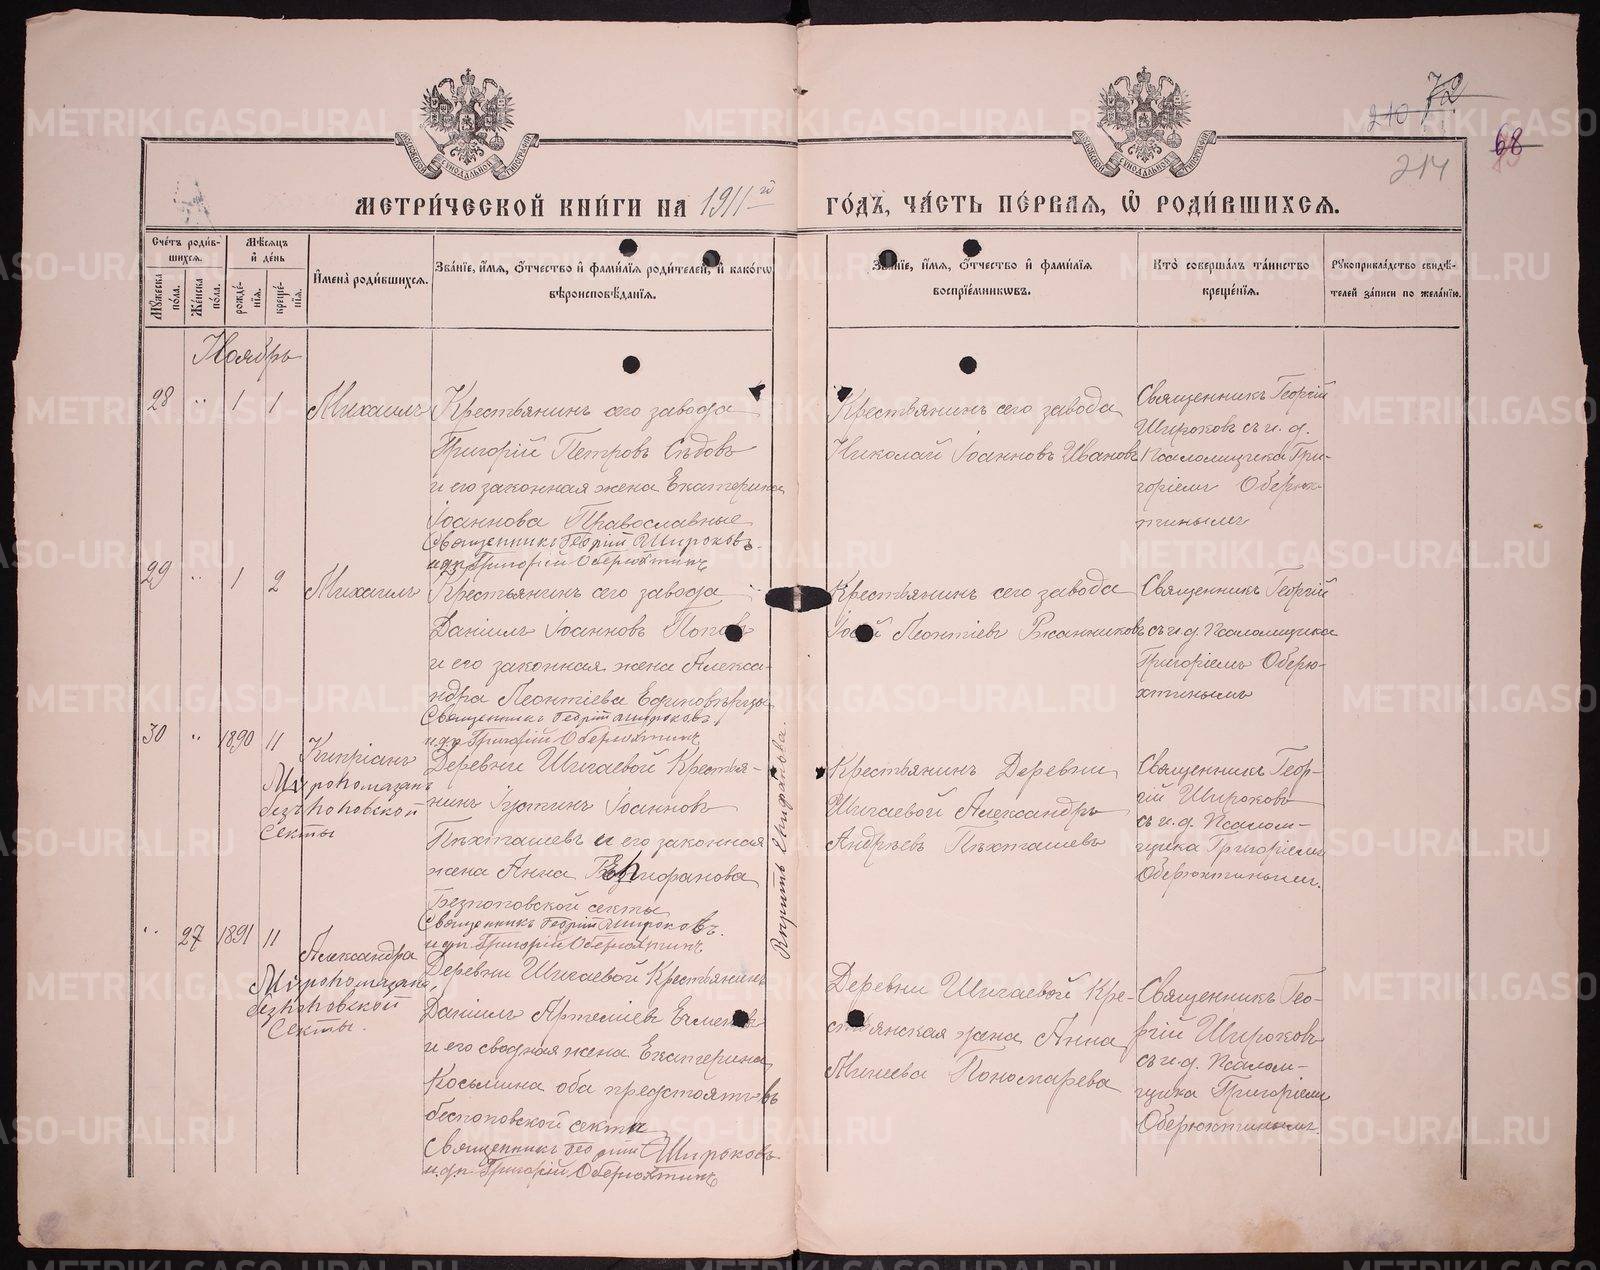 72
210
68
214
МЕТРИ́ЧЕСКОЙ КНИ́ГИ НА 1911й ГО́ДЪ, ЧА́СТЬ ПЕ́РВАЯ, Ѽ РОДИ́ВШИХСЯ.
Сче́тъ роди́в-
шихся.
Мѣ́сяцъ
и҆ де́нь
Мꙋ́жеска по́ла.
Же́нска по́ла.
рожде́-
нїѧ.
креще́-
нїѧ.
И҆мена̀ роди́вшихся.
Зва́нїе, и҆́мѧ, ѻ҆́тчество и҆ фами́лїѧ роди́телей, и҆ како́гѡ
вѣроисповѣ́данїѧ.
Зва́нїе, и҆́мѧ, ѻ҆́тчество и҆ фами́лїѧ
воспрїе́мникѡвъ.
Кто̀ соверша́лъ та́инство
креще́нїѧ.
Рꙋкоприкла́дство свидѣ́-
телей за́писи по жела́нїю.
Ноябрь
28 " 1 1 Михаилъ
Крестьянинъ сего завода
Григорій Петровъ Сѣдовъ
и его законная жена Екатерина
Іоаннова Православные
Священникъ Георгій Широковъ.
и.д.п. Григорій Оберюхтинъ
Крестьянинъ сего завода
Николай Іоанновъ Ивановъ
Священникъ Георгій
Широковъ съ и. д.
Псаломщика Гри-
горіемъ Оберюх-
тинымъ
29 " 1 2 Михаилъ
Крестьянинъ сего завода
Даніилъ Іоанновъ Поповъ
и его законная жена Алекса-
ндра Леонтіева Единовѣрцы
Священникъ Георгій Широковъ,
и.д.п. Григорій Оберюхтинъ
Крестьянинъ сего завода
Леонтіевъ Ржанниковъ
Священникъ Георгій
съ и.д. Псаломщика
Григоріемъ Оберю-
хтинымъ
30 " 1890 11 Кипріанъ
Мѵропомазанъ
безъпоповской
Секты
Деревни Шигаевой Крестья-
нинъ Іустинъ Іоанновъ
Пѣхташевъ и его законная
жена Анна Епифанова
Безпоповской секты
Священникъ Георгій Широковъ.
и.д.п. Григорій Оберюхтинъ
Епифанова.
Крестьянинъ Деревни
Шигаевой Александръ
Андреевъ Пѣхташевъ
Священникъ Геор-
гій Широковъ
съ и.д. Псалом-
щика Григоріемъ
Оберюхтинымъ.
" 27 1891 11 Александра
Мѵропомазана,
безпоповской
Секты.
Деревни Шигаевой Крестьянинъ
Даніилъ Артеміевъ
и его сводная жена Екатерина
Косьмина оба предстоятъ въ
беспоповской секты
Священникъ Георгій Широковъ
и.д.п. Григорій Оберюхтинъ
Деревни Шигаевой Кре-
стьянская жена Анна
Минеева Пономарева
Священникъ Гео-
ргій Широковъ
съ и.д. Псалом-
щика Григоріемъ
Оберюхтинымъ.
METRIKI.GASO-URAL.RU